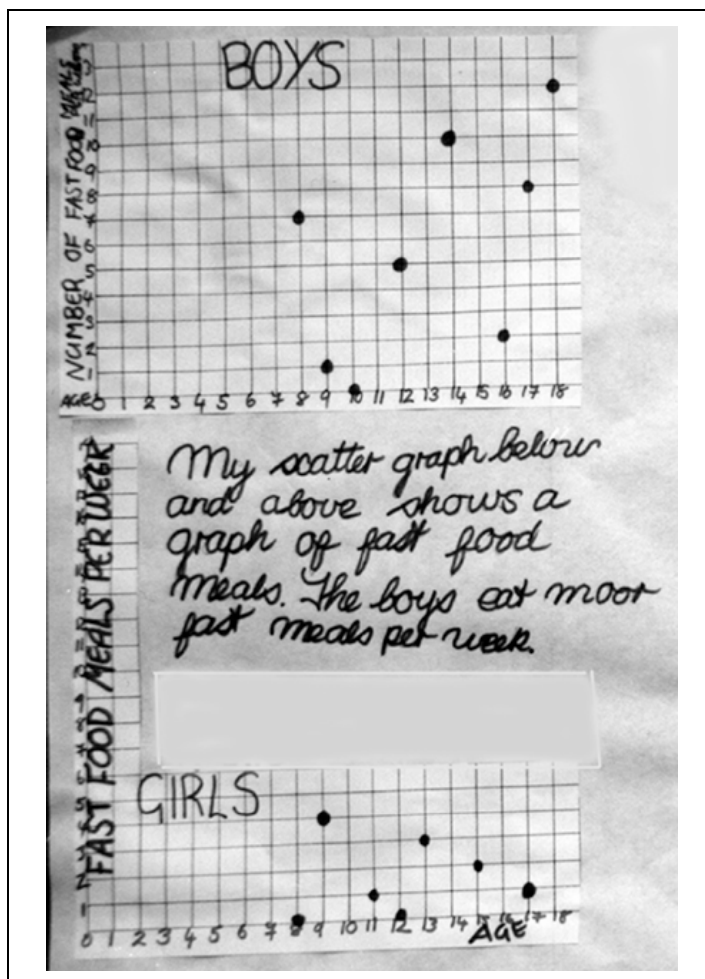 BOYS
NUMBER OF FAST FOOD MEALS
13
12
11
10
9
8
7
6
5
4
3
2
1
AGE 0 1 2 3 4 5 6 7 8 9 10 11 12 13 14 15 16 17 18
My scatter graph below
and above shows a
graph of fast food
meals. The boys eat moor
fast meals per week.
FAST FOOD MEALS PER WEEK
GIRLS
5
4
3
2
1
0 1 2 3 4 5 6 7 8 9 10 11 12 13 14 15 16 17 18
AGE